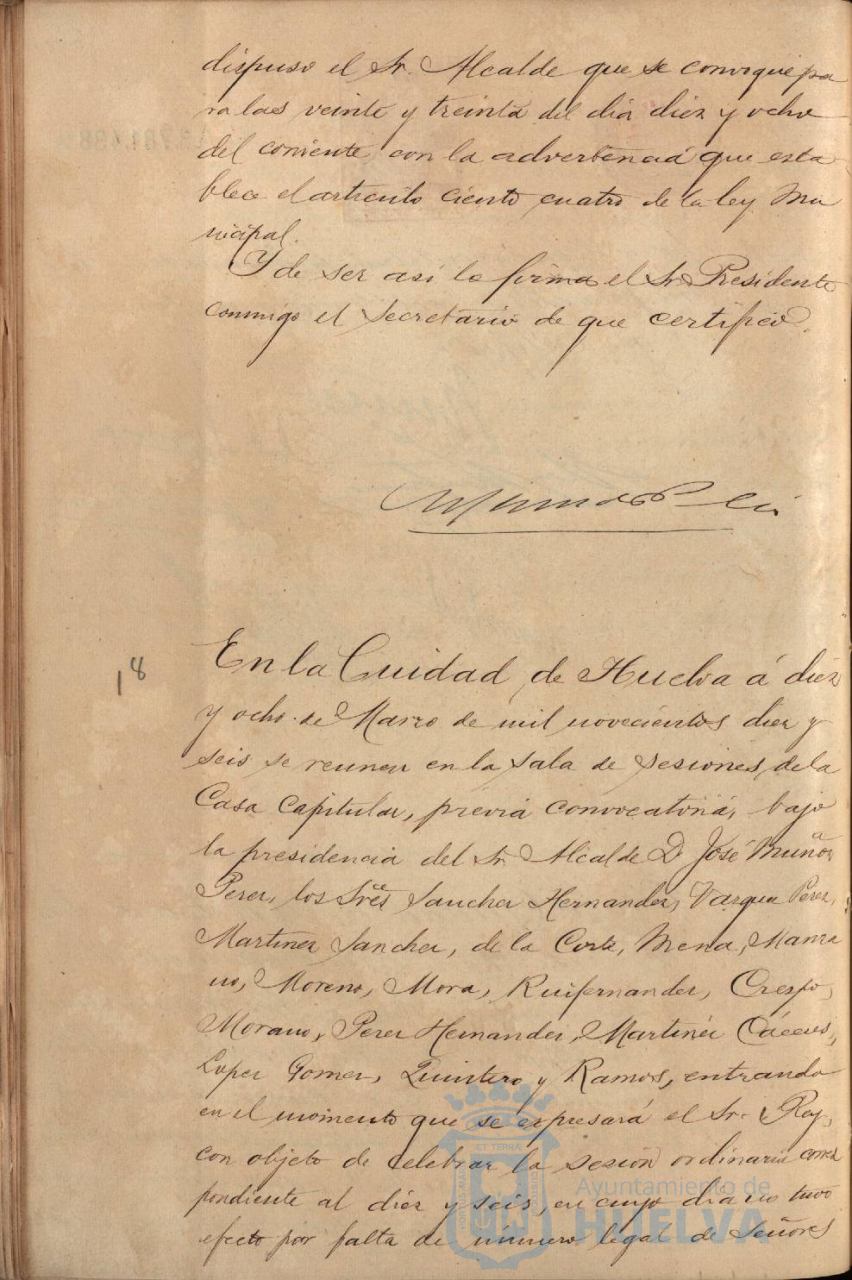 dispuso el Sr. Alcalde que se convoque pa
ra las veinte y treinta del dia diez y ocho
del corriente con la advertencia que esta
blece el articulo ciento cuatro de la ley Mu
nicipal.
Y de ser asi lo firma el Sr. Presidente
conmigo el Secretario de que certifico.
18
En la Cuidad de Huelva á diez
y ocho de Marzo de mil novecientos diez y
seis se reunen en la Sala de Sesiones de la
Casa Capitular, previa convocatoria, bajo
la presidencia del Sr. Alcalde D. José Muñoz
Perez, los Sres Sanchez Hernandez, Vazquez Perez,
Martinez Sanchez, de la Corte, Mena, Manza
no, Moreno, Mora, Ruifernandez, Crespo,
Morano, Perez Hernandez, Martinez Cáceres,
Lopez Gomez, Quintero y Ramos, entrando
en el momento que se expresará el Sr. Rey,
con objeto de celebrar la sesion ordinaria corres
pondiente al diez y seis, en cuyo dia no tuvo
efecto por falta de numero legal de Señores
Ayuntamiento de
HUELVA